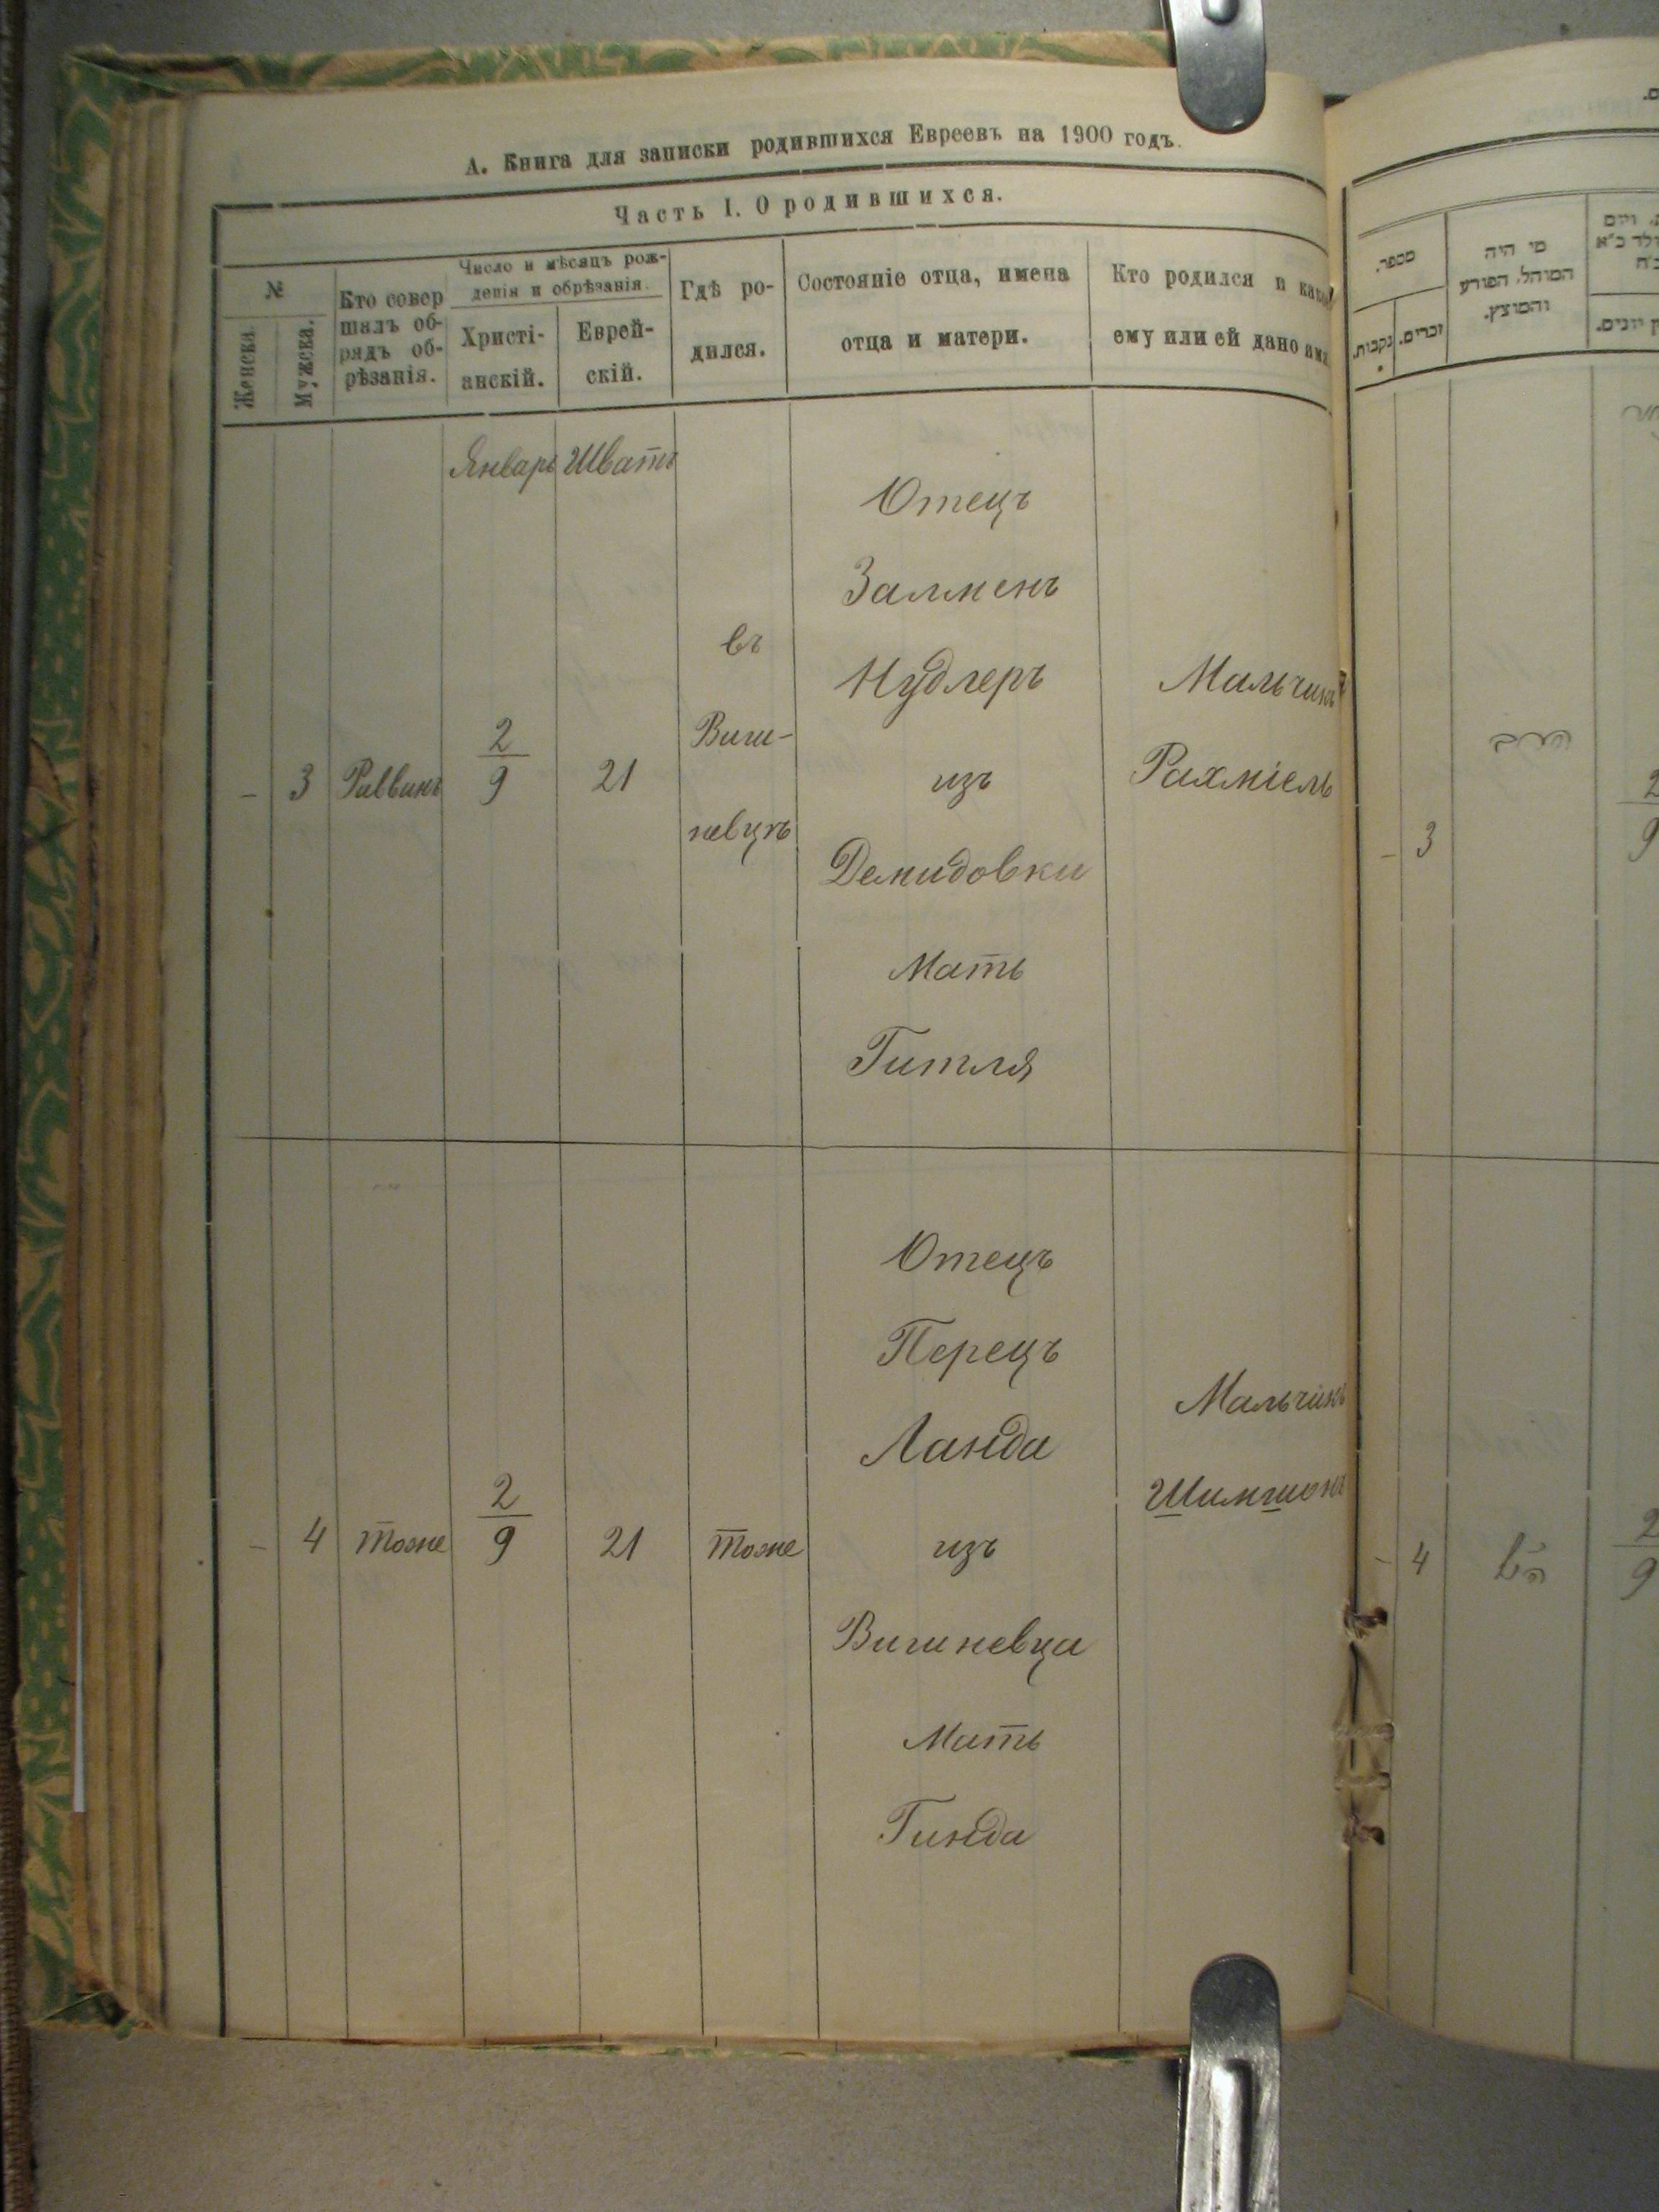 А. Книга для записки родившихся Евреевъ на 1900 годъ.
Часть I. О родившихся.
№
Женска.
Мужска.
Кто совер
шалъ об-
рядъ об-
рѣзанія.
Число и мѣсяцъ рож-
денія и обрѣзанія.
Христі-
анскій.
Еврей-
скій.
Гдѣ ро-
дился.
Состояніе отца, имена
отца и матери.
Кто родился и какое
ему или ей дано имя
Январь Шватъ
– 3 Раввинъ
2
9
21
въ
Виш-
невцѣ
Отецъ
Залменъ
Нудлеръ
изъ
Демидовки
Мать
Гитля
Мальчикъ
Рахміель
– 4 Тоже
2
9
21
Тоже
Отецъ
Перецъ
Ланда
изъ
Вишневца
Мать
Гинда
Мальчикъ
Шимшонъ
מספר.
זכרים.
נקבות.
מי היה
המוהל, הפורע
והמוצץ.
– 3
הרב
2
9
– 4
2
9